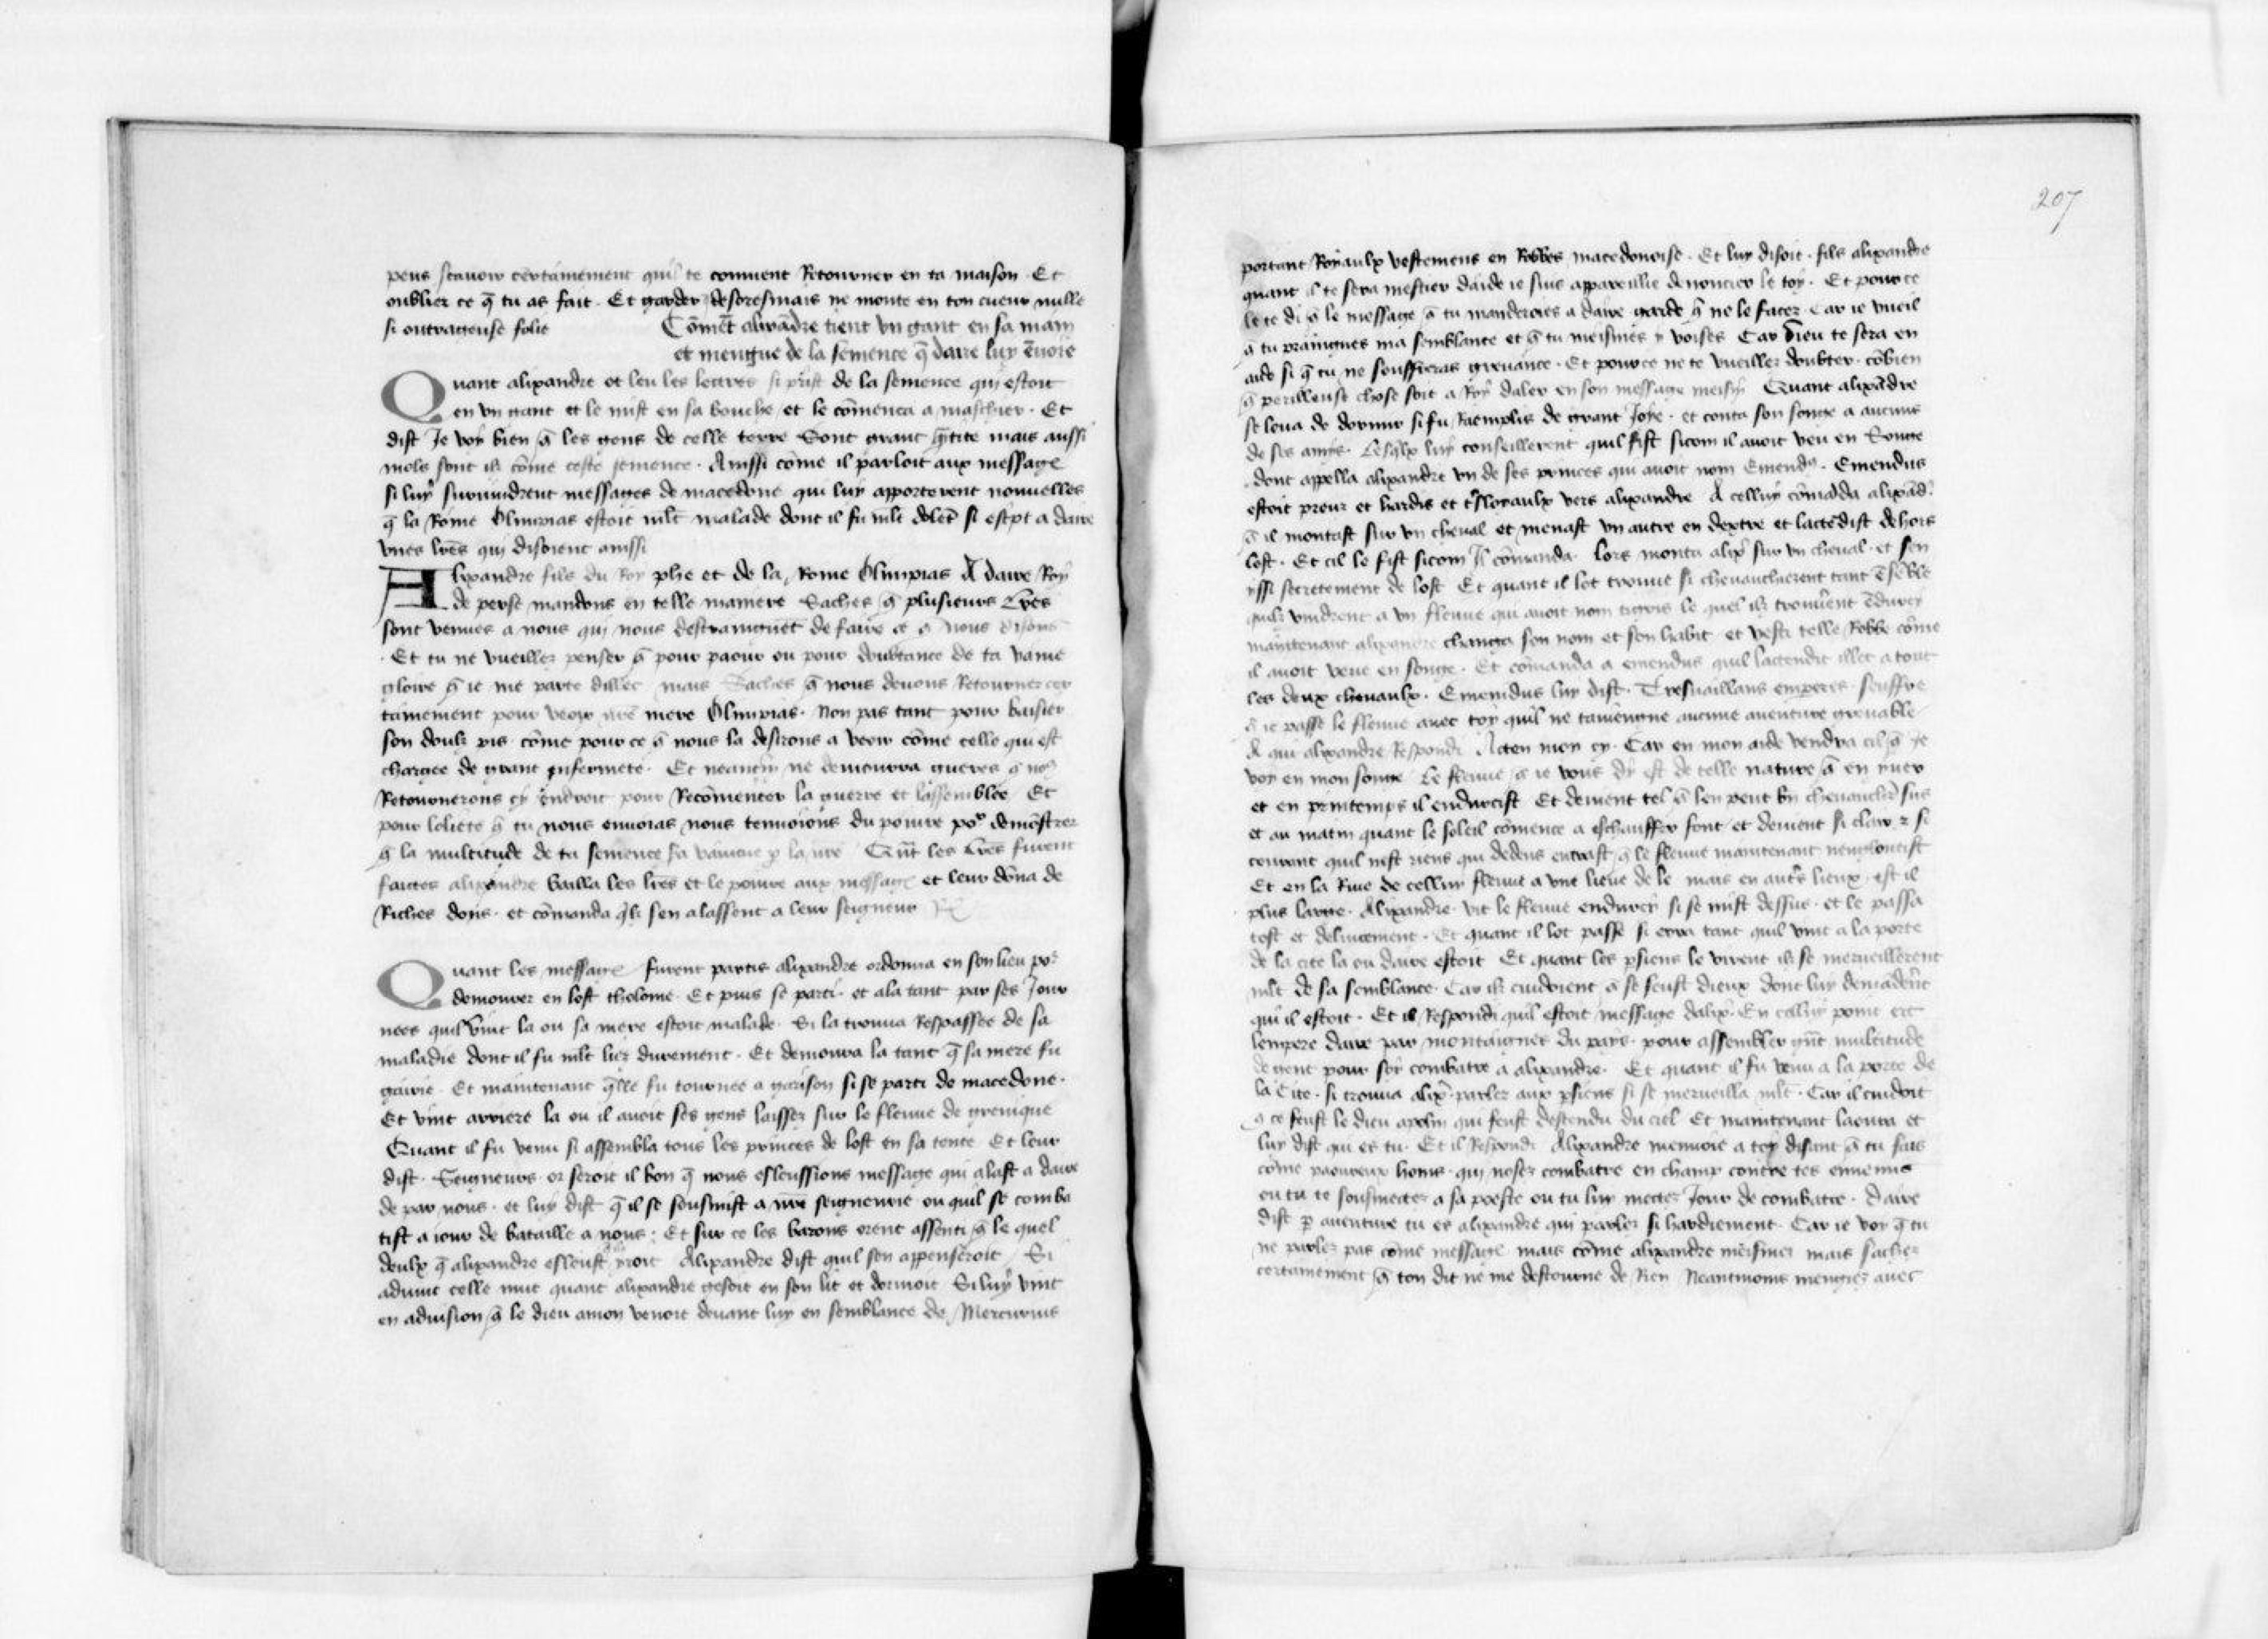 peus scauoir certainement quil te conuient Retourner en ta maison . Et
oublier ce q̄ tu as fait . Et garder desoresmais ne monte en ton cueur nulle
si outrageuse folie
Cōmēt alixādre tient vn gant en sa main
et mengue de la semence q̄ daire luy ēuoie
Quant alixandre et leu les lectres si prist de la semence qui estoit
en vn gant et le mist en sa bouche et le cōmenca a maschier . Et
dist Je voy bien q̄ les gens de celle terre Sont grant q̄tite mais aussi
mols sont ilz cōme ceste semence . Ainssi cōme il parloit aux message
si luy suruindrent messages de macedone qui luy apporterent nouuelles
q̄ la Roine Olimpias estoit mlt malade dont il fu mlt dolēt si escript a daire
vnes lrēs qui disoient ainssi
Alixandre fils du Roy phe et de la Roine Olimpias A daire Roy
de perse mandons en telle maniere Saches q̄ plusieurs lrēs
sont venues a nous qui nous destraingnēt de faire ce q̄ nous disons
. Et tu ne vueilles penser q̄ pour paour ou pour doubtance de ta vaine
gloire q̄ ie me parte dillec mais Saches q̄ nous deuons Retourner cer
tainement pour veoir nr̄e mere Olimpias . Non pas tant pour baisier
son doulz pis cōme pour ce q̄ nous la desirons a veoir cōme celle qui est
chargee de grant enfermete . Et neantm̄ ne demourra gueres q̄ noꝰ
Retournerons cy endroit pour Recōmencer la guerre et lassemblee Et
pour loliete q̄ tu nous enuoias nous tenuoions du poiure poꝛ demōstrer
q̄ la multitude de ta semence sa vaincue p̱ la nr̄e Qūt les lrēs furent
faictes alixandre bailla les lrēs et le poiure aux message et leur dōna de
Riches dons . et cōmanda q̄lz sen alassent a leur seigneur
Quant les message furent partis alixandre ordonna en son lieu poꝛ
demourer en lost tholome . Et puis se parti . et ala tant par ses Jour
nees quil vint la ou sa mere estoit malade . Si la trouua Respassee de sa
maladie dont il fu mlt liez durement . Et demoura la tant q̄ sa mere fu
garie . Et maintenant q̄lle fu tournee a garison si se parti de macedone .
Et vint arriere la ou il auoit ses gens laissez sur le fleuue de grenique
Quant il fu venu si assembla tous les princes de lost en sa tente Et leur
dist . Seigneurs or seroit il bon q̄ nous esleussions message qui alast a daire
de par nous . et luy dist q̄ il se sousmist a nr̄e seigneurie ou quil se comba
tist a iour de bataille a nous : Et sur ce les barons orent assenti q̄ le quel
deulx q̄ alixandre esleust yroit Alixandre dist quil sen appenseroit Si
aduint celle nuit quant alixandre gesoit en son lit et dormoit Si luy vint
en aduision q̄ le dieu amon venoit deuant luy en semblance de Mercurius
207
portant Royaulx vestemens en Robbes macedonoise . Et luy disoit . fils alixandre
quant il te sera mestier daide ie suis appareillie denoncier le toy . Et pour ce
le te di q̄ le message q̄ tu manderoies a daire garde q̄ ne le faces . Car ie vueil
q̄ tu praingnes ma semblance et q̄ tu meismes y voises Car dieu te sera en
aide si q̄ tu ne souffreras greuance . Et pour ce ne te vueilles doubter . cōbien
q̄ perilleuse chose soit a Roy daler en son message meism̄ Quant alixādre
se leua de dormir si fu Raemplis de grant Joye . et conta son songe a aucuns
de ses amys . Lesq̄lx luy conseillerent quil fist sicom il auoit veu en Songe
dont appella alixandre vn de ses princes qui auoit nom Emendꝰ . Emendus
estoit preux et hardis et tr̄sloyaulx vers alixandre A celluy cōmāda alixād̄
q̄ il montast sur vn cheual et menast vn autre en dextre et lactēdist dehors
lost . Et cil le fist sicom Il cōmanda . Lors monta alix̄ sur vn cheual . et sen
yssi secretement de lost Et quant il lot trouue si cheuaucherent tant ēsēble
quilz vindrent a vn fleuue qui auoit nom tigris le quel ilz trouuēret ēdurcy
maintenant alixandre changa son nom et son habit et vesti telle Robbe cōme
il auoit veue en songe . Et cōmanda a emendus quil lactendit illec a tout
les deux cheuaulx . Emenidus luy dist . Tresuaillans emperes . seuffre
q̄ ie passe le fleuue auec toy quil ne tauiengne aucune auenture greuable
A qui alixandre Respondi Acten moy cy . Car en mon aide vendra cil q̄ Je
voy en mon songe Le fleuue q̄ ie vous dy est de telle nature q̄ en yuer
et en printemps il endurcist Et deuient tel q̄ len peut bn̄ cheuauchēr sus
et au matin quant le soleil cōmence a eschauffer font et deuient si clair z si
courant quil nest riens qui dedens entrast q̄ le fleuue maintenant nengloutist
Et en la Riue de celluy fleuue a vne lieue de le mais en autr̄s lieux est il
plus large . Alixandre vit le fleuue endurcy si se mist dessus . et le passa
tost et deliurement . Et quant il lot passe si erra tant quil vint a la porte
de la cite la ou daire estoit Et quant les psiens le virent ilz se merueillerent
mlt de sa semblance . Car ilz cuidoient q̄ se feust dieux dont luy demādēret
qui il estoit . Et il Respondi quil estoit message dalix̄ . En celluy point ert
lempere daire par montaignes du pays . pour assembler gn̄t multitude
de gent pour soy combatre a alixandre . Et quant il fu venu a la porte de
la Cite . si trouua alix̄ parler aux psiens si se merueilla mlt . Car il cuidoit
q̄ ce feust le dieu apolin qui feust descendu du ciel Et maintenant laoura et
luy dist qui es tu . Et il Respondi Alixandre menuoie a toy disant q̄ tu fais
cōme paoureux homs . qui noses combatre en champ contre tes ennemis
ou tu te sousmectes a sa poeste ou tu luy mectes Jour de combatre . Daire
dist p̱ auenture tu es alixandre qui parles si hardiement . Car ie voy q̄ tu
ne parles pas cōme message mais cōme alixandre meismes mais saches
certainement q̄ ton dit ne me destourne de Rien Neantmoins mengies auec